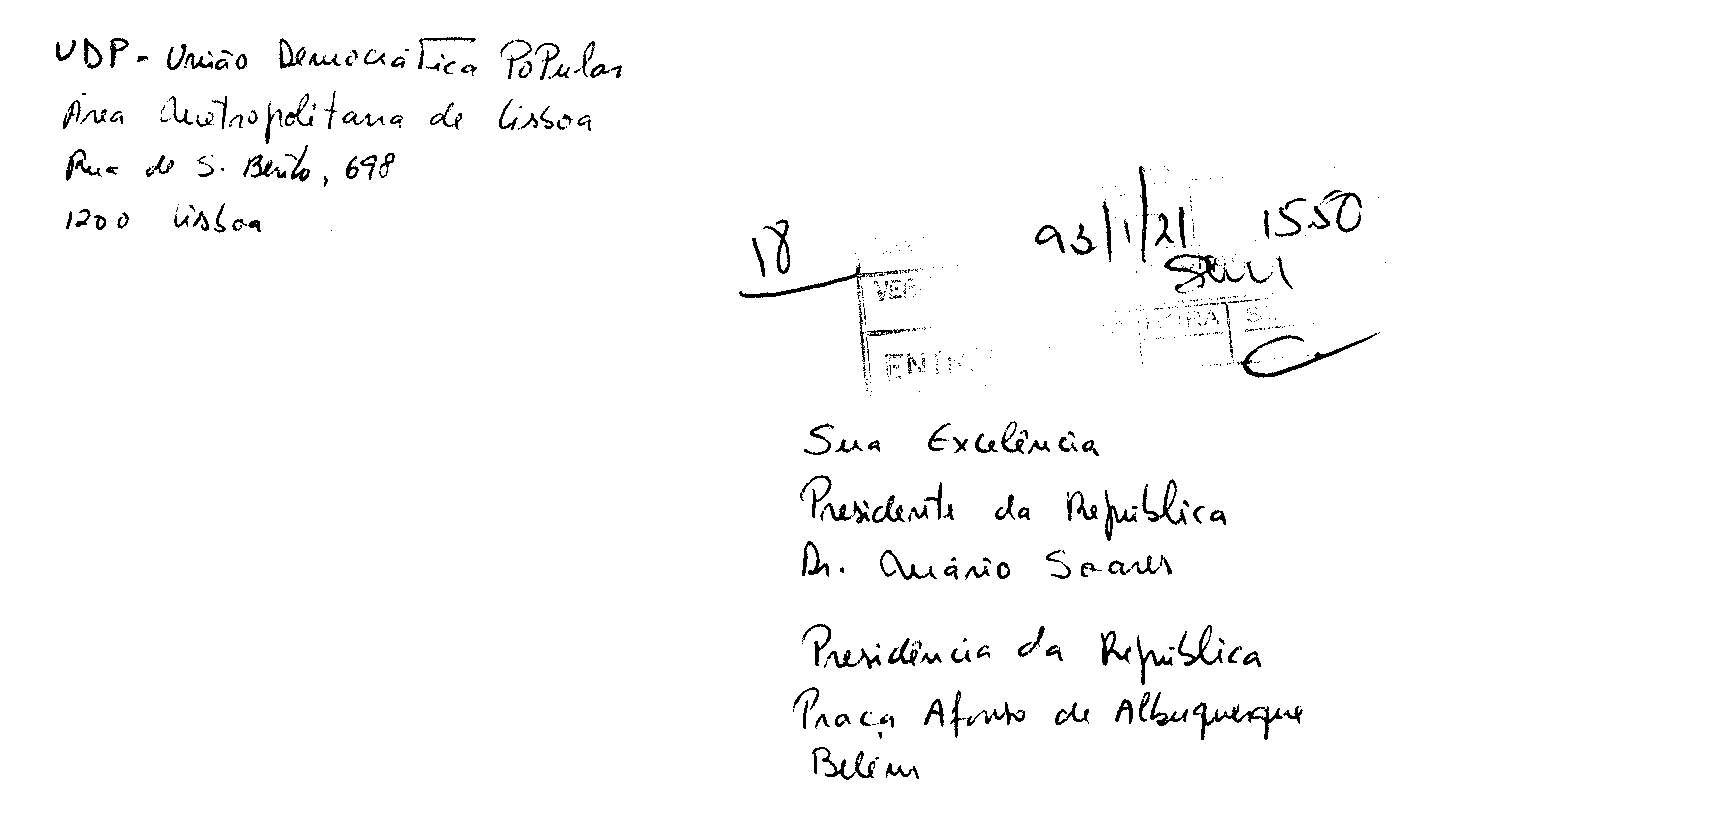 UDP - União Democrática Popular
Área Metropolitana de Lisboa
Rua de S. Bento, 698
1200 Lisboa
18
93/1/21 1550
Sua Excelência
Presidente da República
Dr. Mário Soares
Presidência da República
Praça Afonso de Albuquerque
Belém